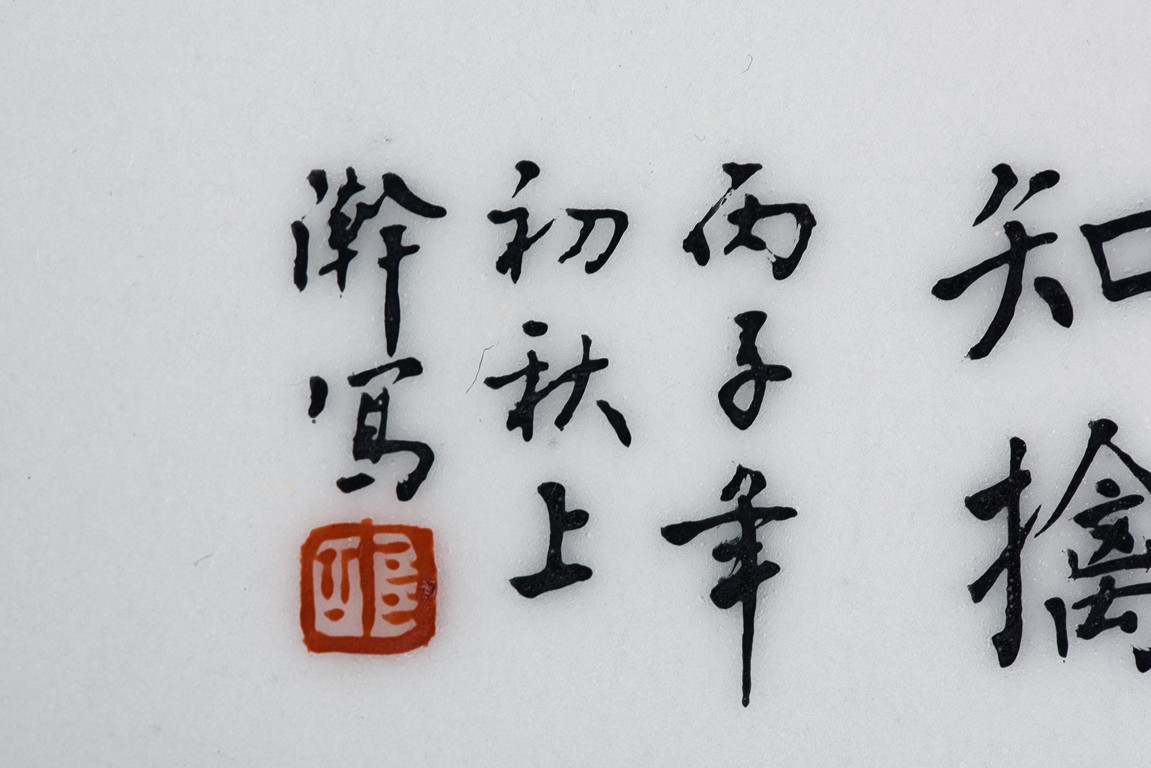 知擒
丙子年
初秋上
澣寫